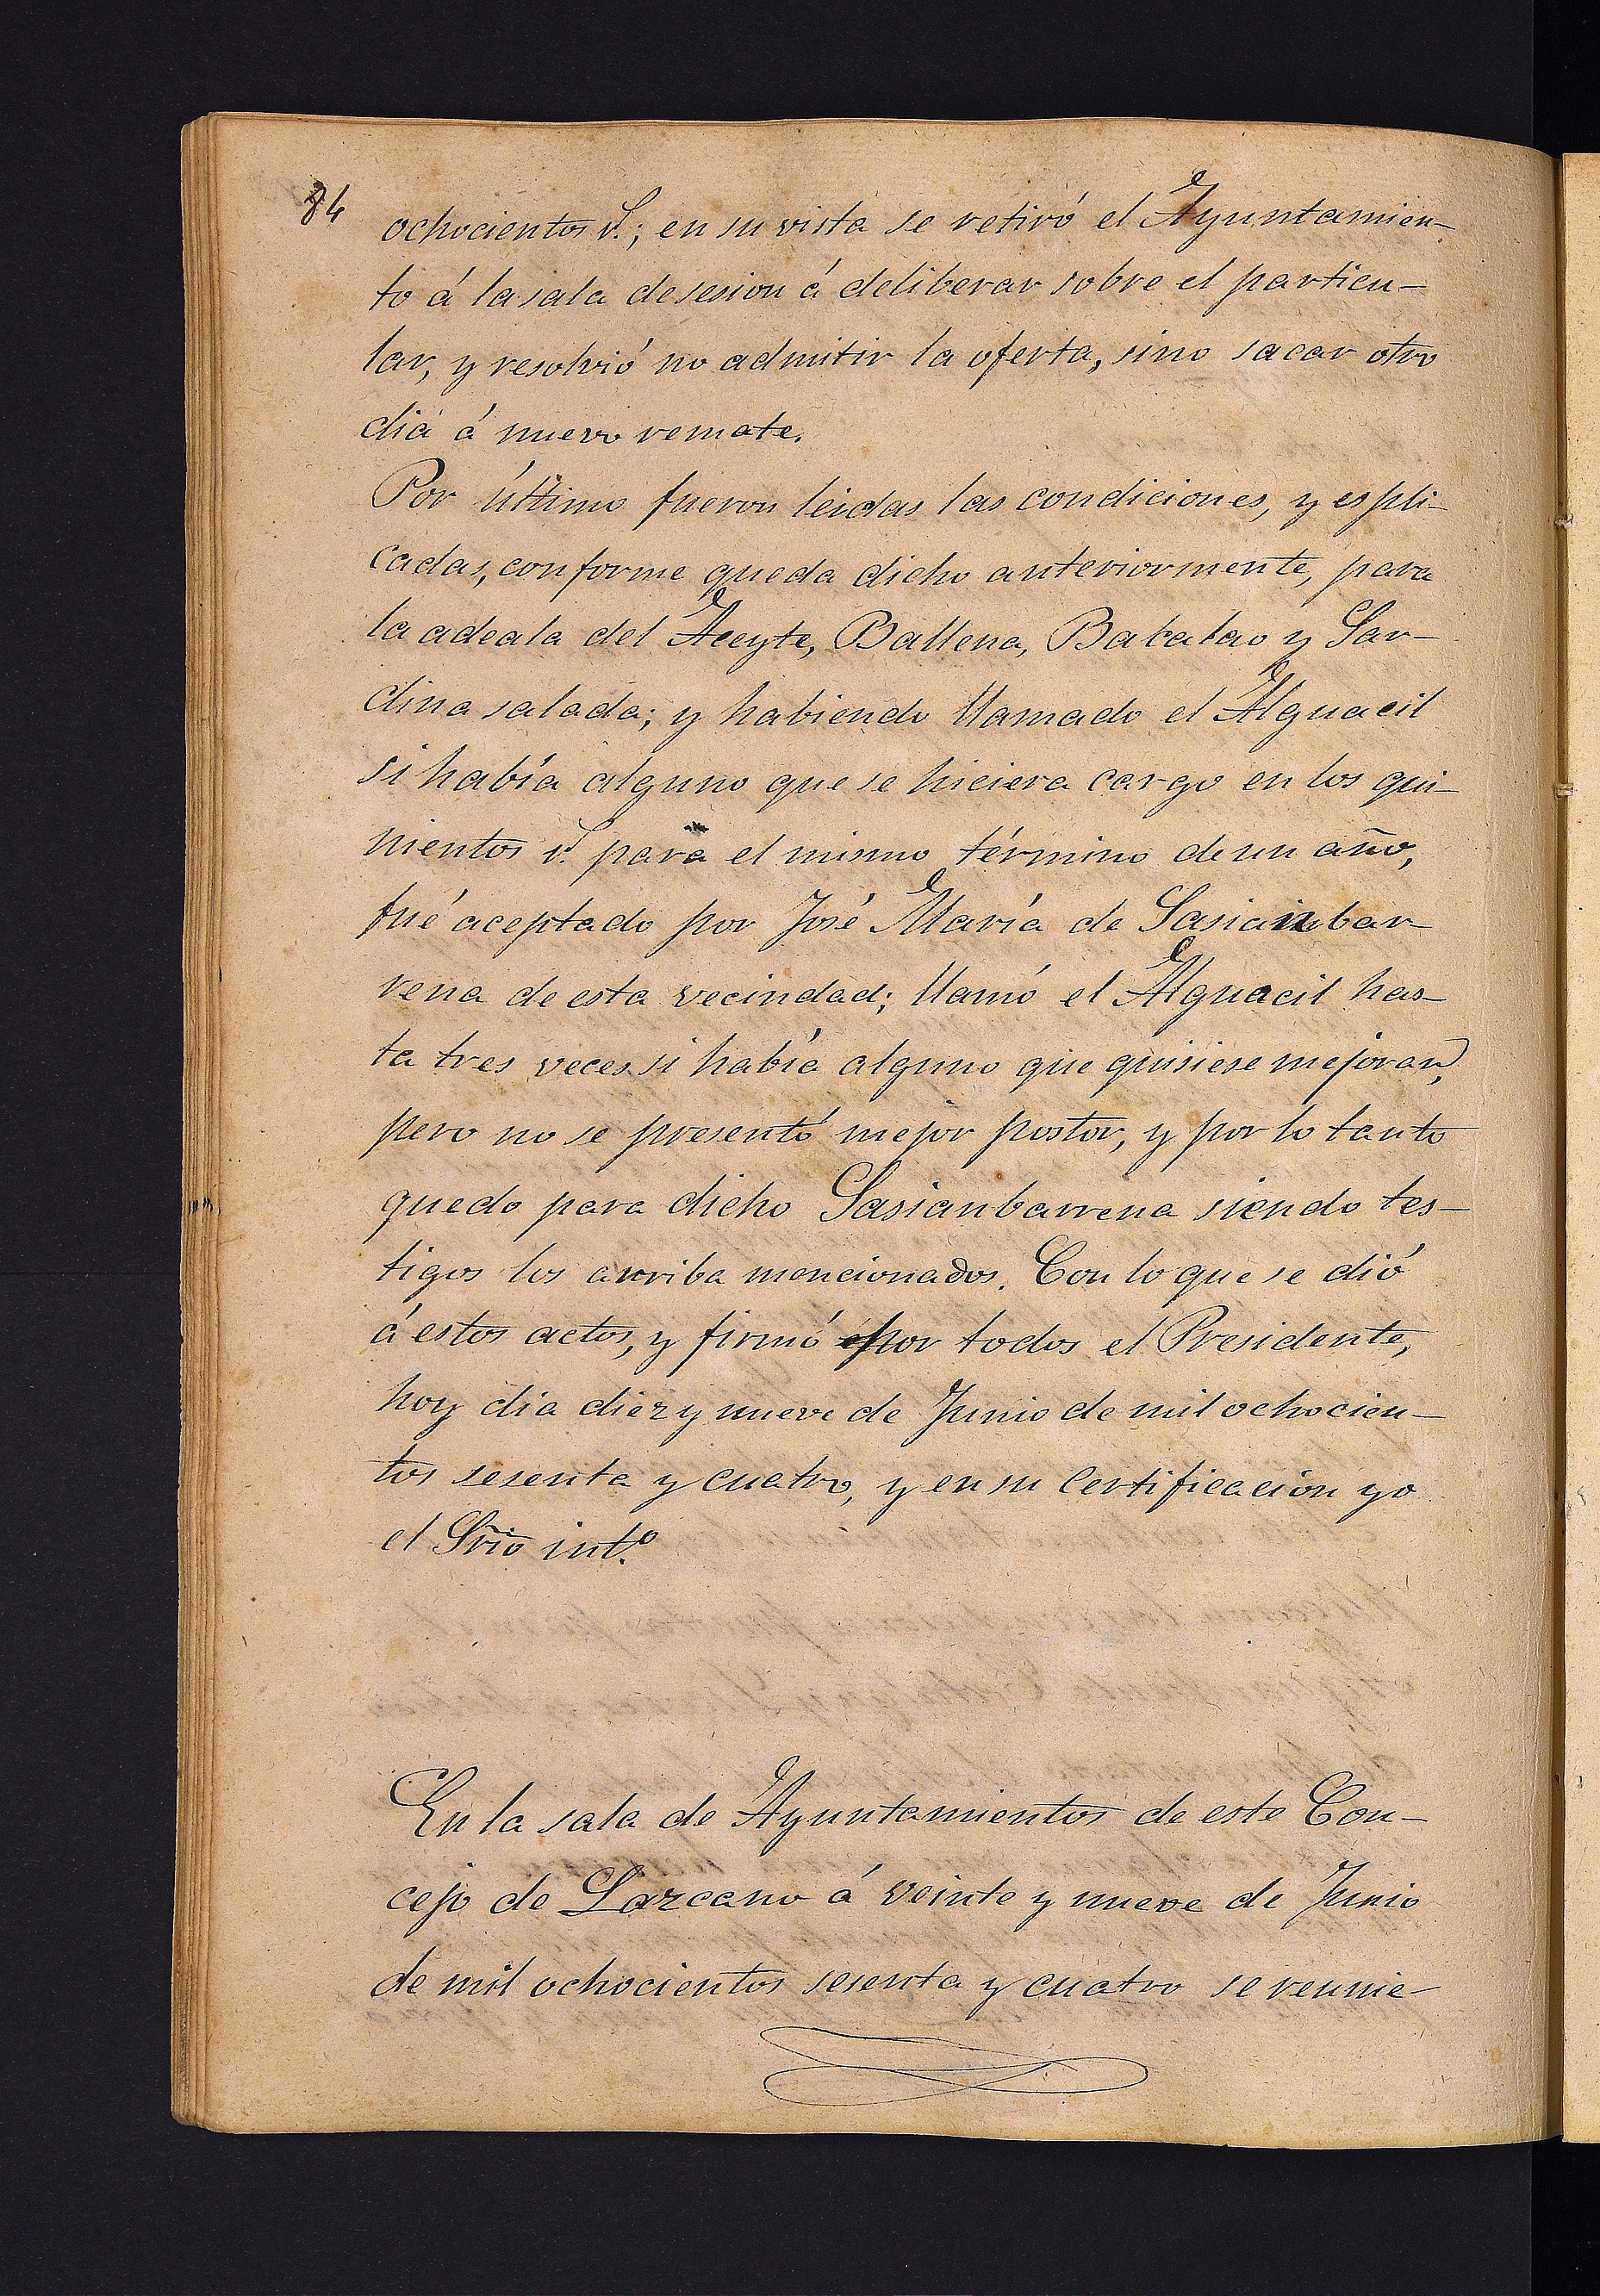 84
ochocientos r.^s; en su vista se retiró el Ayuntamien-
to á la sala de sesion á deliberar sobre el particu-
lar, y resolvió no admitir la oferta, sino sacar otro
dia á nuevo remate.
Por último fueron leidas las condiciones, y espli-
cadas, conforme queda dicho anteriormente, para
la adeala del Aceyte, Ballena, Bacalao y Sar-
dina salada; y habiendo llamado el Alguacil
si había alguno que se hiciera cargo en los qui-
nientos r.^s para el mismo término de un año,
fué aceptado por José María de Sasianbar-
rena de esta vecindad; llamó el Alguacil has-
ta tres veces si había alguno que quisiese mejorar,
pero no se presentó mejor postor, y por lo tanto
quedo para dicho Sasianbarrena siendo tes-
tigos los arriba mencionados. Con lo que se dió
á estos actos, y firmó por todos el Presidente,
hoy dia diez y nueve de Junio de mil ochocien-
tos sesenta y cuatro, y en su certificacion yo
el Srio int.º
En la sala de Ayuntamientos de este Con-
cejo de Lazcano á veinte y nueve de Junio
de mil ochocientos sesenta y cuatro se reunie-